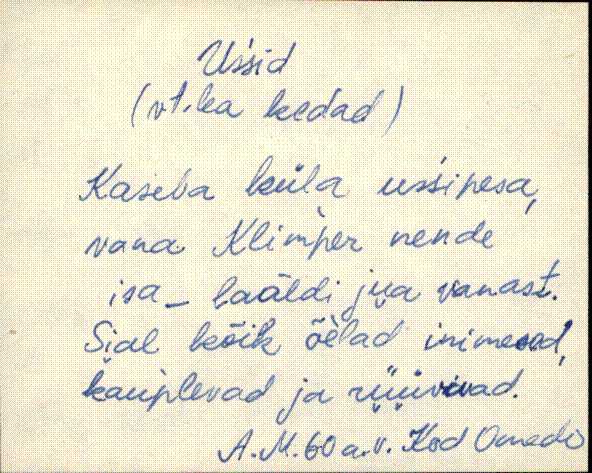 Ussid
(vt. ka kedad)
Kaseba küla ussipesa,
vana Klimper nende
isa _ laäldi jua vanast.
Sial kõik õelad inimesed,
kauplevad ja rüüvivad.
A. M. 60 a. v. Kod Omedo